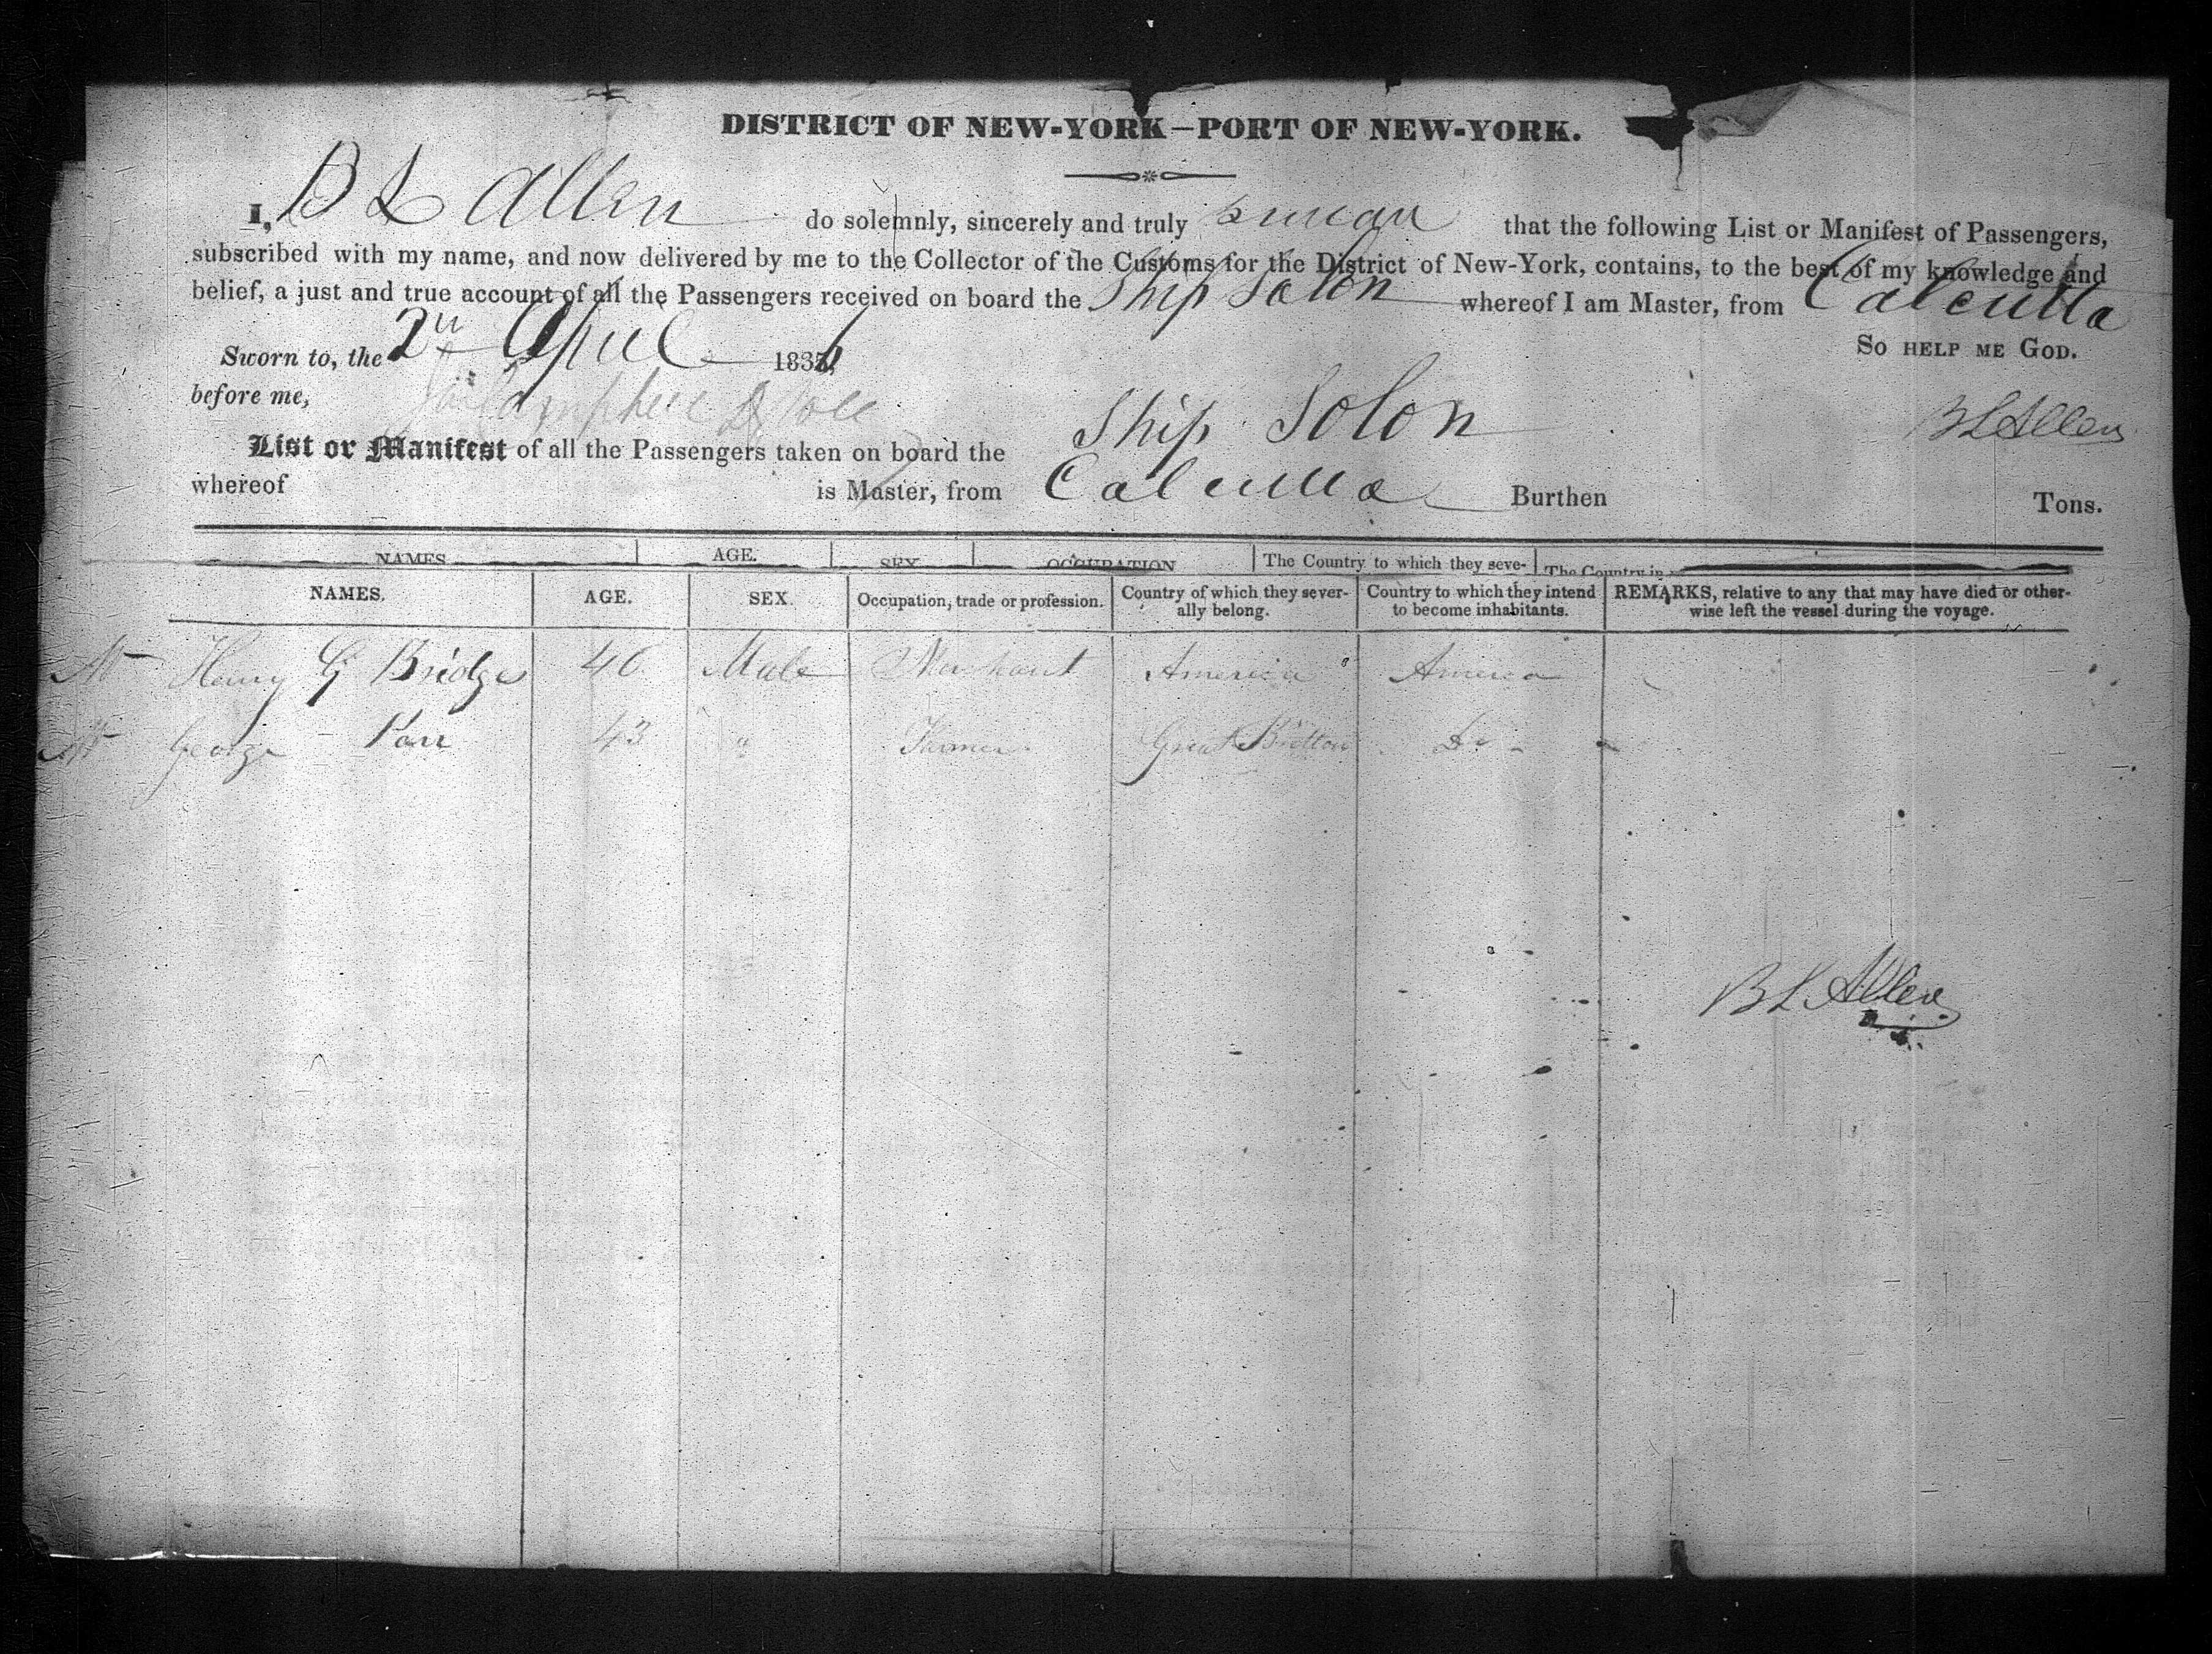 DISTRICT OF NEW-YORK—PORT OF NEW-YORK.
I, B L Allen do solemnly, sincerely and truly swear that the following List or Manifest of Passengers,
subscribed with my name, and now delivered by me to the Collector of the Customs for the District of New-York, contains, to the best of my knowledge and
belief, a just and true account of all the Passengers received on board the Ship Solon whereof I am Master, from Calcutta
So HELP ME GOD.
Sworn to, the 2 April 183
before me,
B L Allen
List or Manifest of all the Passengers taken on board the Ship Solon
whereof is Master, from Calcutta Burthen Tons.
NAMES AGE. SEX OCCUPATION The Country to which they seve- The Country in
NAMES. AGE. SEX. Occupation, trade or profession. Country of which they sever- Country to which they intend REMARKS, relative to any that may have died or other-
ally belong. to become inhabitants. wise left the vessel during the voyage.
Mr Henry G Bridge 40 Male Merchant America America
Mr George 43 " Farmer Great Britton Do
B L Allen